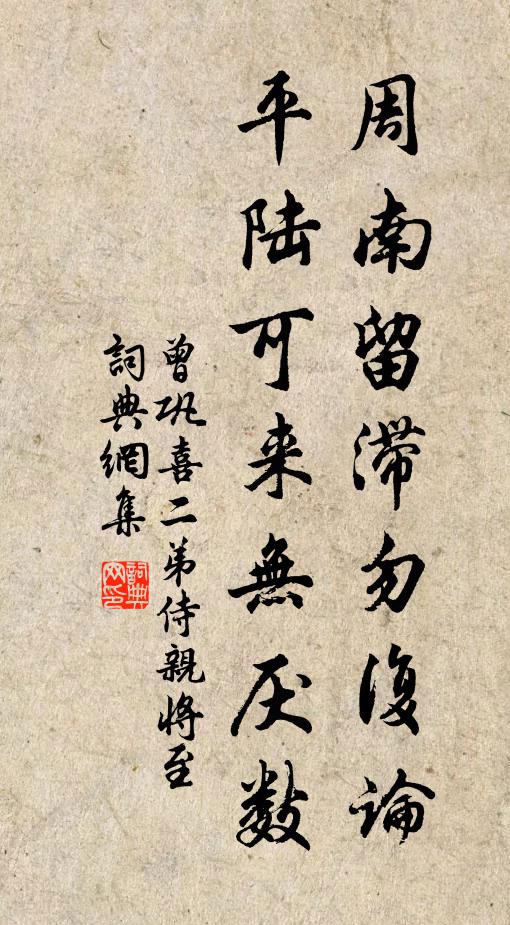 周南留滞勿復論
平陆可来無厌数
曾巩喜二弟侍親將至
詞典網集
詞典网印